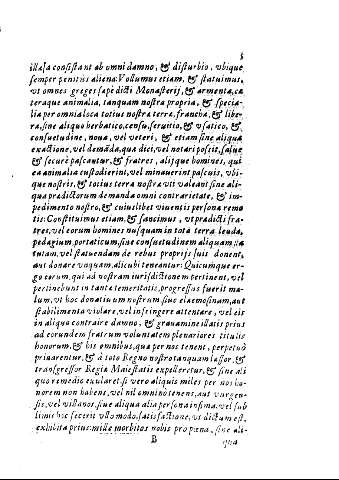 5
illæsa consistant ab omni damno, & disturbio, vbique
semper penitùs aliena: Vollumus etiam, & statuimus,
vt omnes greges sæpè dicti Monasterij, & armenta, cæ
teraque animalia, tanquam nostra propria, & specia-
lia per omnia loca totius nostra terra, francha, & libe-
ra, sine aliquo herbatico, censu, seruitio, & vsatico, &
consuetudine, noua, vel veteri, & etiam sine aliqua
exactione, vel demãda, quæ dici, vel notari possit, saluè
& securè pascantur, & fratres, alijque homines, qui
ea animalia custodierint, vel minauerint pascuis, vbi-
que nostris, & totius terra nostra vti valeant sine ali-
qua prædictorum demanda omni contrarietate, & im-
pedimento nostro, & cuiuslibet viuentis persona remo
tis: Constituimus etiam, & sancimus, vt prædicti fra-
tres, vel eorum homines nusquam in tota terra leuda,
pedagium, portaticum, siue consuetudinem aliquam
tuam, vel statuendam de rebus proprijs suis donent,
aut donare vnquam, alicubi teneantur: Quicumque er-
go eorum, qui ad nostram iurisdictionem pertinent, vel
pertinebunt in tantæ temeritatis, progressus fuerit ma-
lum, vt hoc donatiuum nostrum, siue elæmosinam, aut
stabilimenta violare, vel infringere attentare, vel eis
in aliquo contraire damno, & grauamine illatis prius
ad eorundem fratrum voluntatem plenariores titulis
honorum, & bis omnibus, quæ per nos tenent, perpetuò
priuarentur, & à toto Regno nostro tanquam læssor, &
transgressor Regia Maiestatis expelleretur, & sine ali
quo remedio exularet, si vero aliquis miles per nos ho-
norem non habens, vel nil omnino tenens, aut vurgen-
sis, vel villanos, siue aliqua alia persona infima, vel sub
limis hic fecerit vllo modo, satisfactione, vt dictum est,
exhibita prius: mille morbitos nobis pro pœna, sine ali-
B